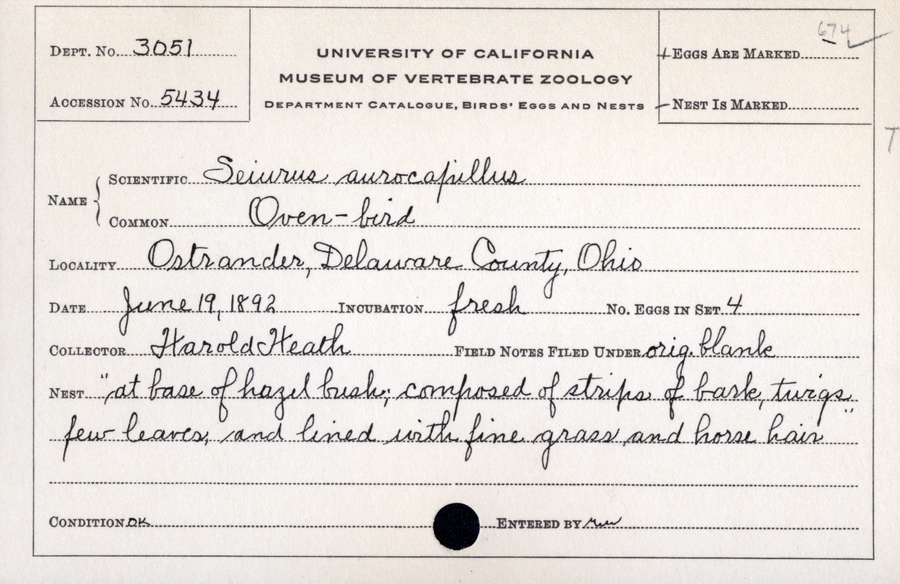 674
DEPT. No. 3051
UNIVERSITY OF CALIFORNIA
+ EGGS ARE MARKED
MUSEUM OF VERTEBRATE ZOOLOGY
ACCESSION No. 5434
DEPARTMENT CATALOGUE, BIRDS' EGGS AND NESTS
– NEST IS MARKED
T
NAME
SCIENTIFIC Seiurus aurocapillus
COMMON Oven-bird
LOCALITY Ostrander, Delaware County, Ohio
DATE June 19, 1892 INCUBATION fresh No. EGGS IN SET 4
COLLECTOR Harold Heath FIELD NOTES FILED UNDER orig. blank
NEST "at base of hazel bush; composed of strips of bark, twigs
few leaves, and lined with fine grass and horse hair"
CONDITION OK ENTERED BY